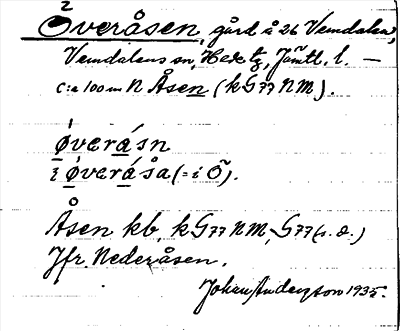 Överåsen, gård å 26 Vemdalen,
Vemdalens sn, Hede tg, Jämtl. l. —
c:a 100 m N Åsen (k G77 NM).
øverásn
i øveråsa (= i Õ).
Åsen kb, k G77 NM, G77 (s. å.)
Jfr. Nederåsen.
Johan Anderzson 1935.